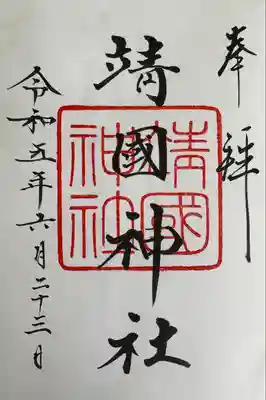 奉拝
靖國神社
靖國
神社
令和五年六月二十三日